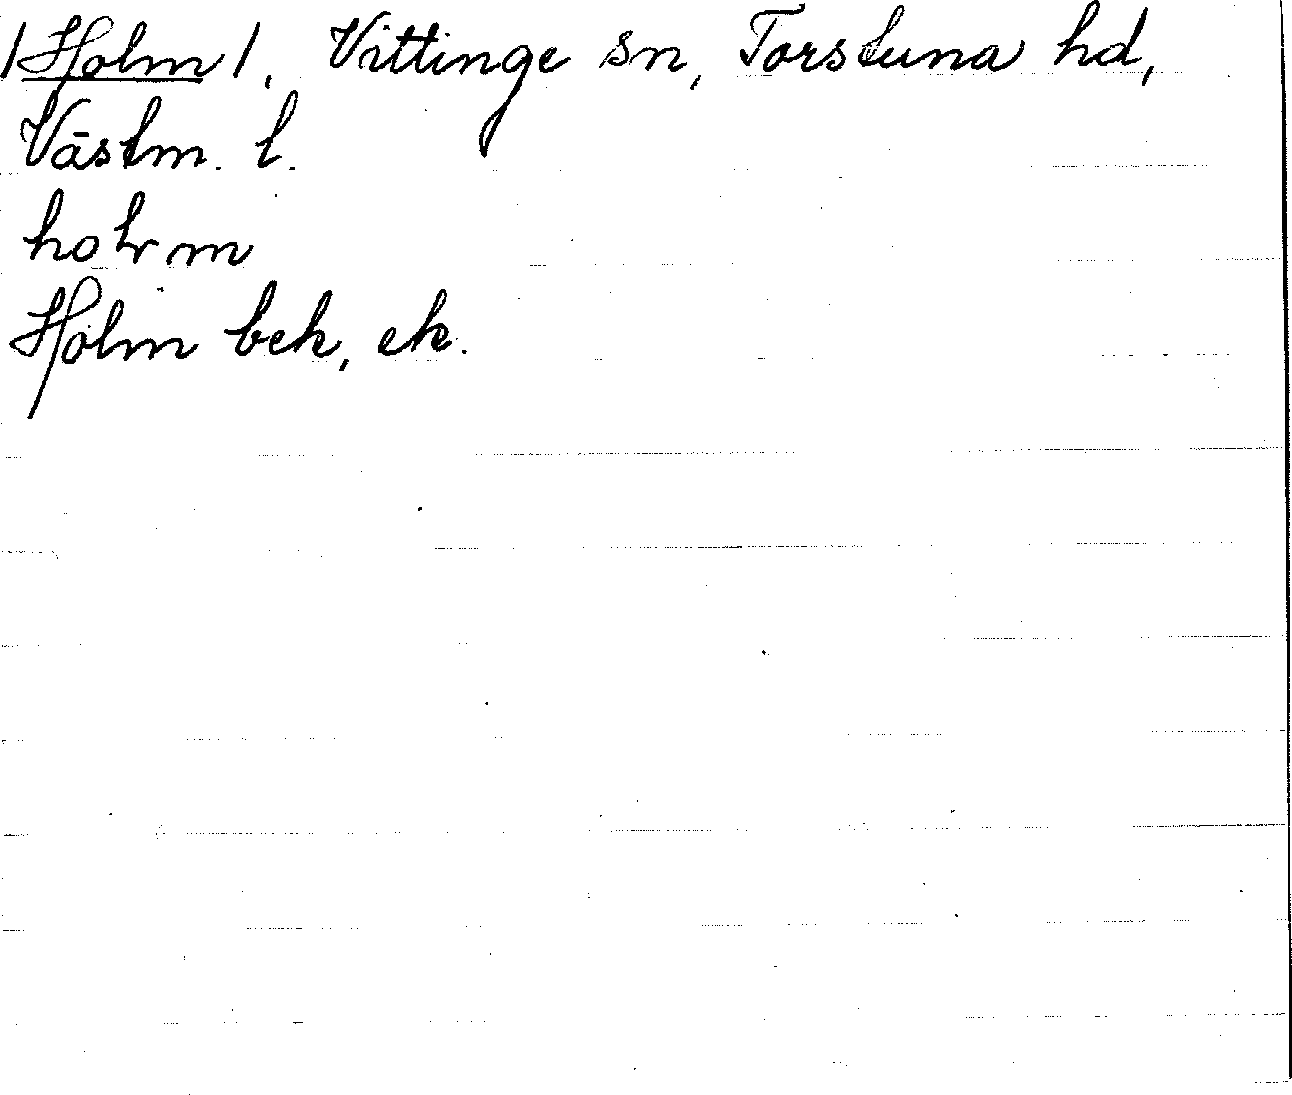 /Holm/, Vittinge sn, Torstuna hd,
Västm. l.
holm
Holm bek, ek.